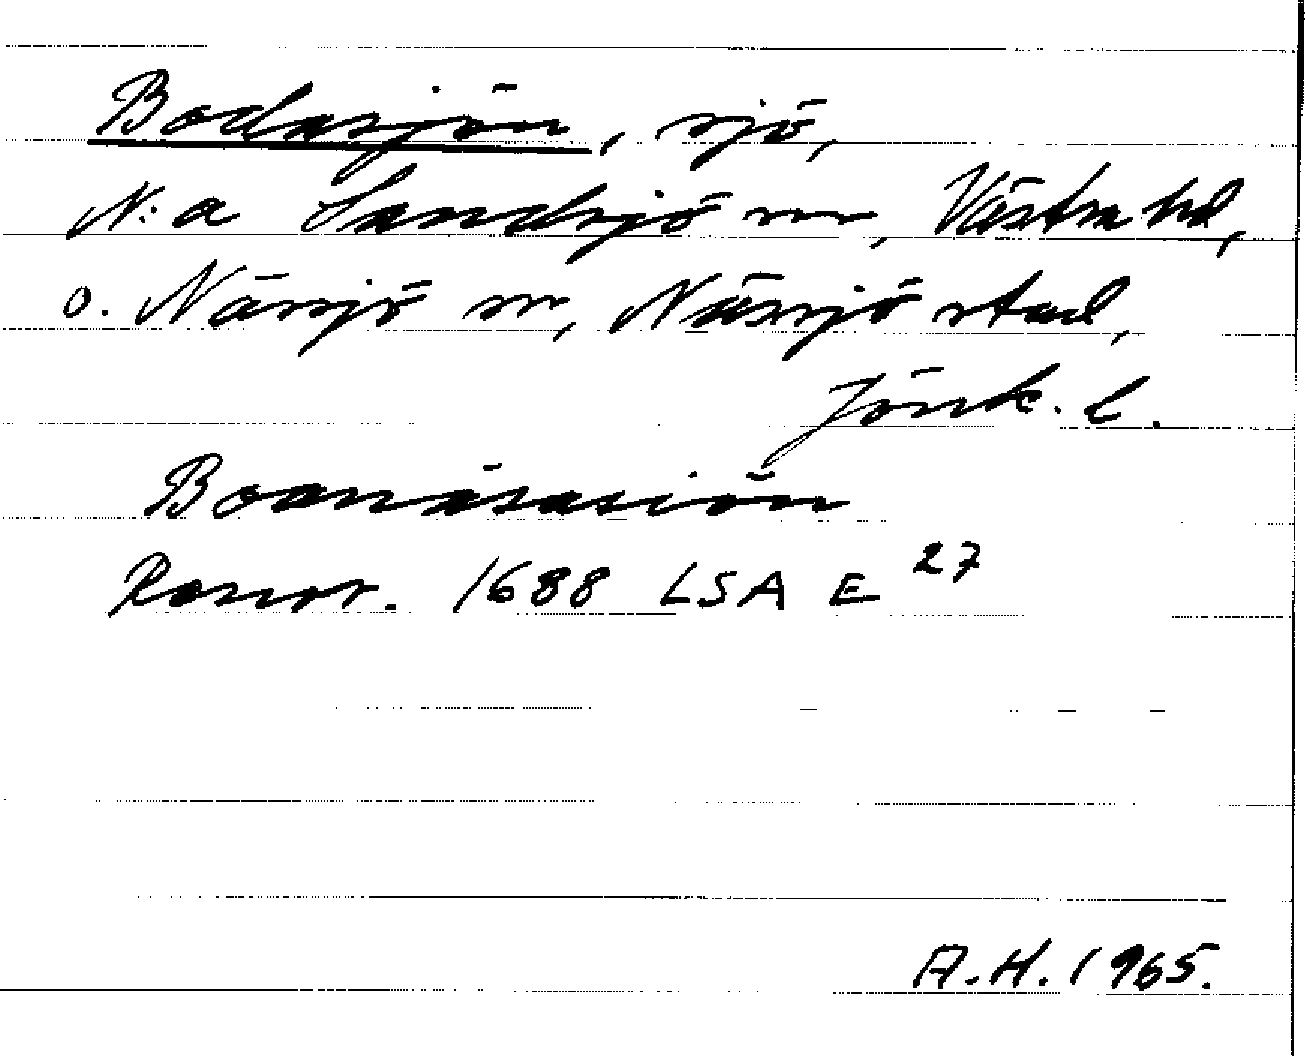 Bodasjön, sjö,
N:a Sandsjö sn, Västra hd,
o. Nässjö sn, Nässjö stad,
Jönk. l.
Boanäsasiön
Ransr. 1688 LSA E 27
A.H. 1965.